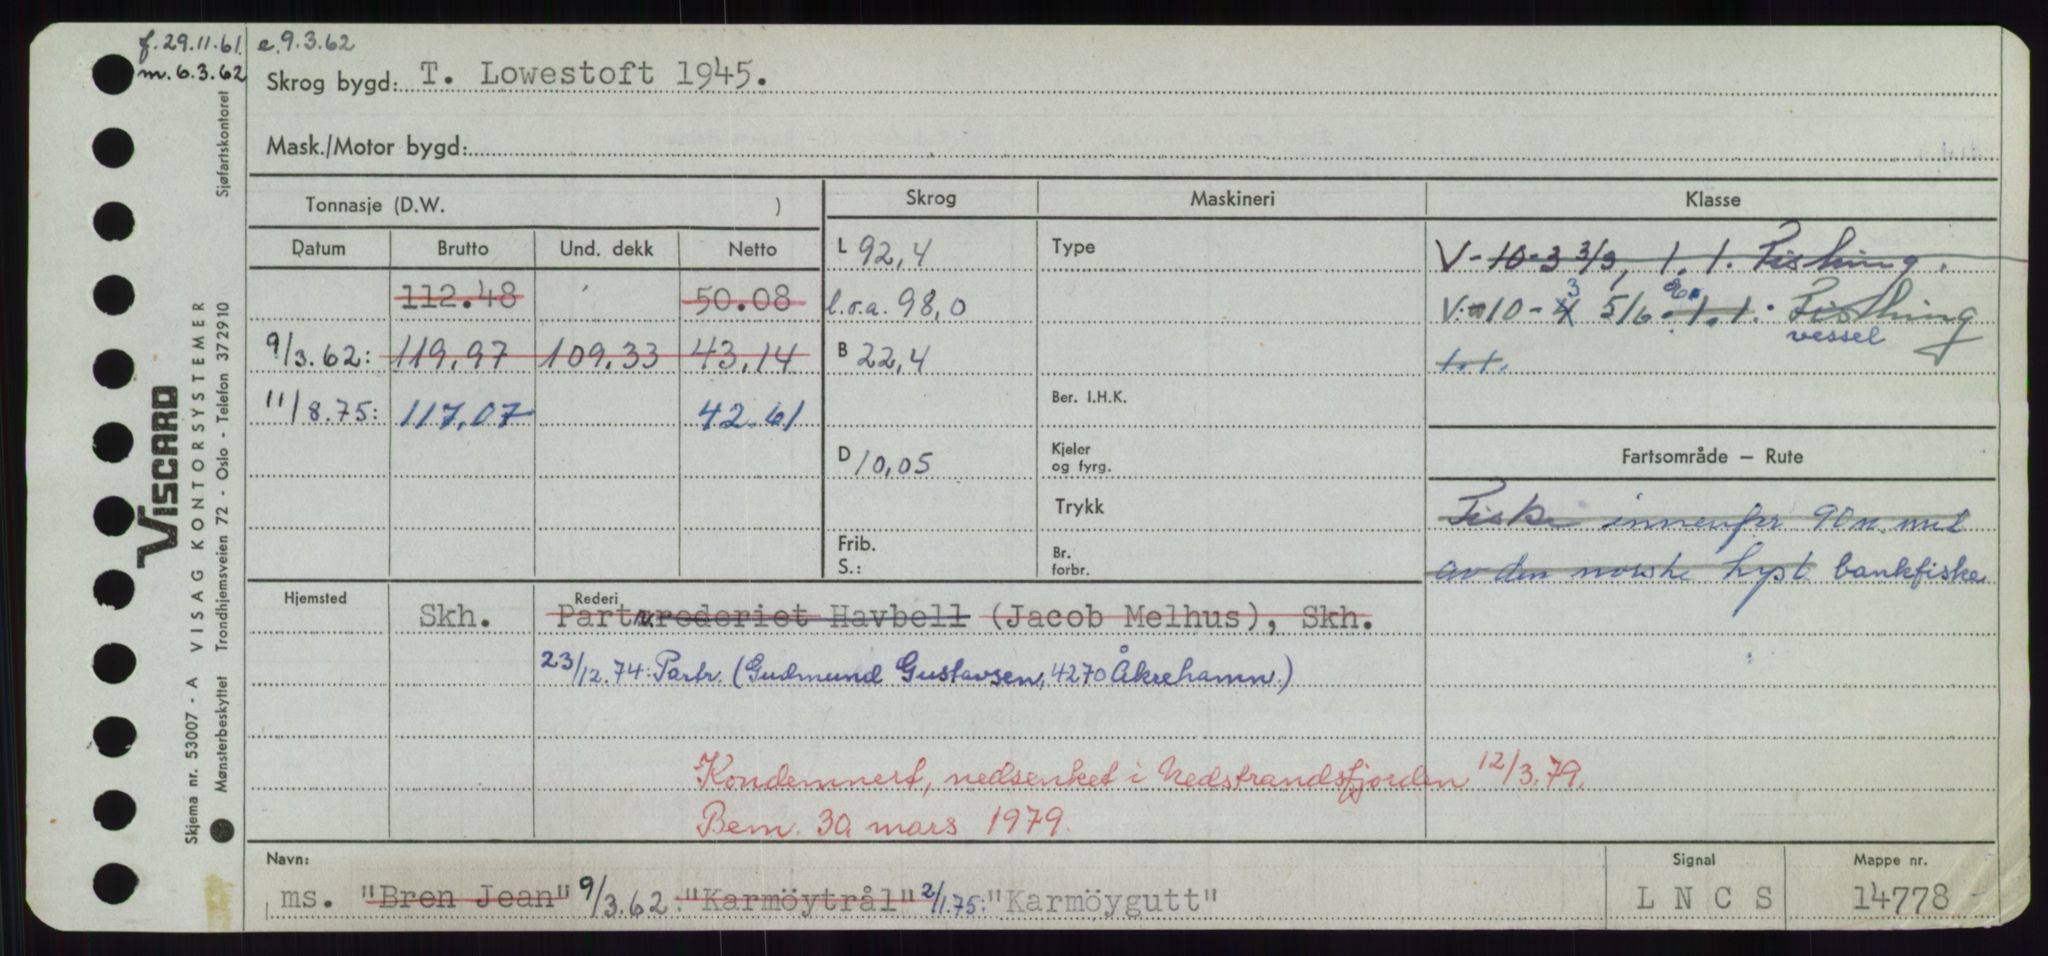 f. 29.11.61. e. 9.3.62
m. 6.3.62
Skrog bygd: T. Lowestoft 1945.
Mask./Motor bygd:
Tonnasje (D.W. )
Skrog Maskineri Klasse
Datum Brutto Und. dekk Netto
112.48 50.08
9/3.62: 119,97 109,33 43,14
11/8.75: 117,07 42.61
L 92,4
l.o.a. 98,0
B 22,4
D 10,05
Frib.
S.:
Type
Ber. I.H.K.
Kjeler
og fyrg.
Trykk
Br.
forbr.
V-10-3 3/3, 1.1. Fishing.
V-10-4 3 5/6 1.1. Fishing
vessel
1.1.
Fartsområde — Rute
Fiske innenfor 90 n. mil
av den norske kyst bankfiske
Hjemsted Rederi
Skh. Partsrederiet Havbell (Jacob Melhus), Skh.
23/12.74: Partr. (Gudmund Gustavsen, 4270 Åkrehamn.)
Kondemnert, nedsenket i Nedstrandsfjorden 12/3.79.
Bem. 30 mars 1979.
Navn: Signal Mappe nr.
ms. "Bren Jean" 9/3.62: "Karmöytrål" 2/1.75: "Karmöygutt" LNCS 14778
VISCARD
VISAG KONTORSYSTEMER
Skjema nr. 53007 - A
Mønsterbeskyttet Trondhjemsveien 72 - Oslo - Telefon 372910 Sjøfartskontoret